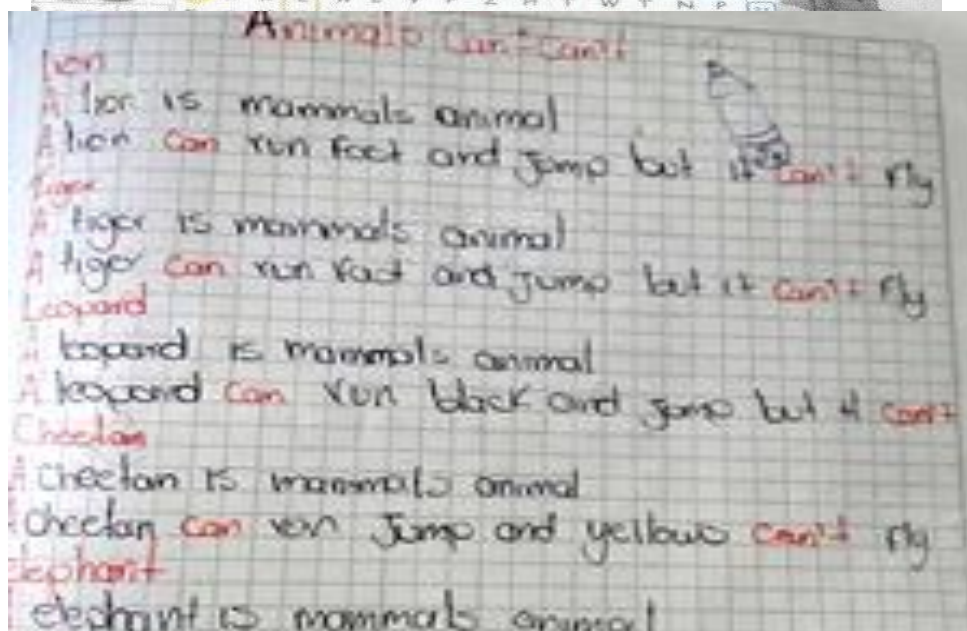 Animals Can - Can't
lion
A lion is mammals animal
A lion can run fact and jump but it can't fly
tiger
A tiger is mammals animal
A tiger can run fact and jump but it can't fly
Leopard
A leopard is mammals animal
A leopard can run black and jump but it can't
Cheetan
A cheetan is mammals animal
cheetan can run jump and yellows can't fly
elephant
elephant is mammals animal